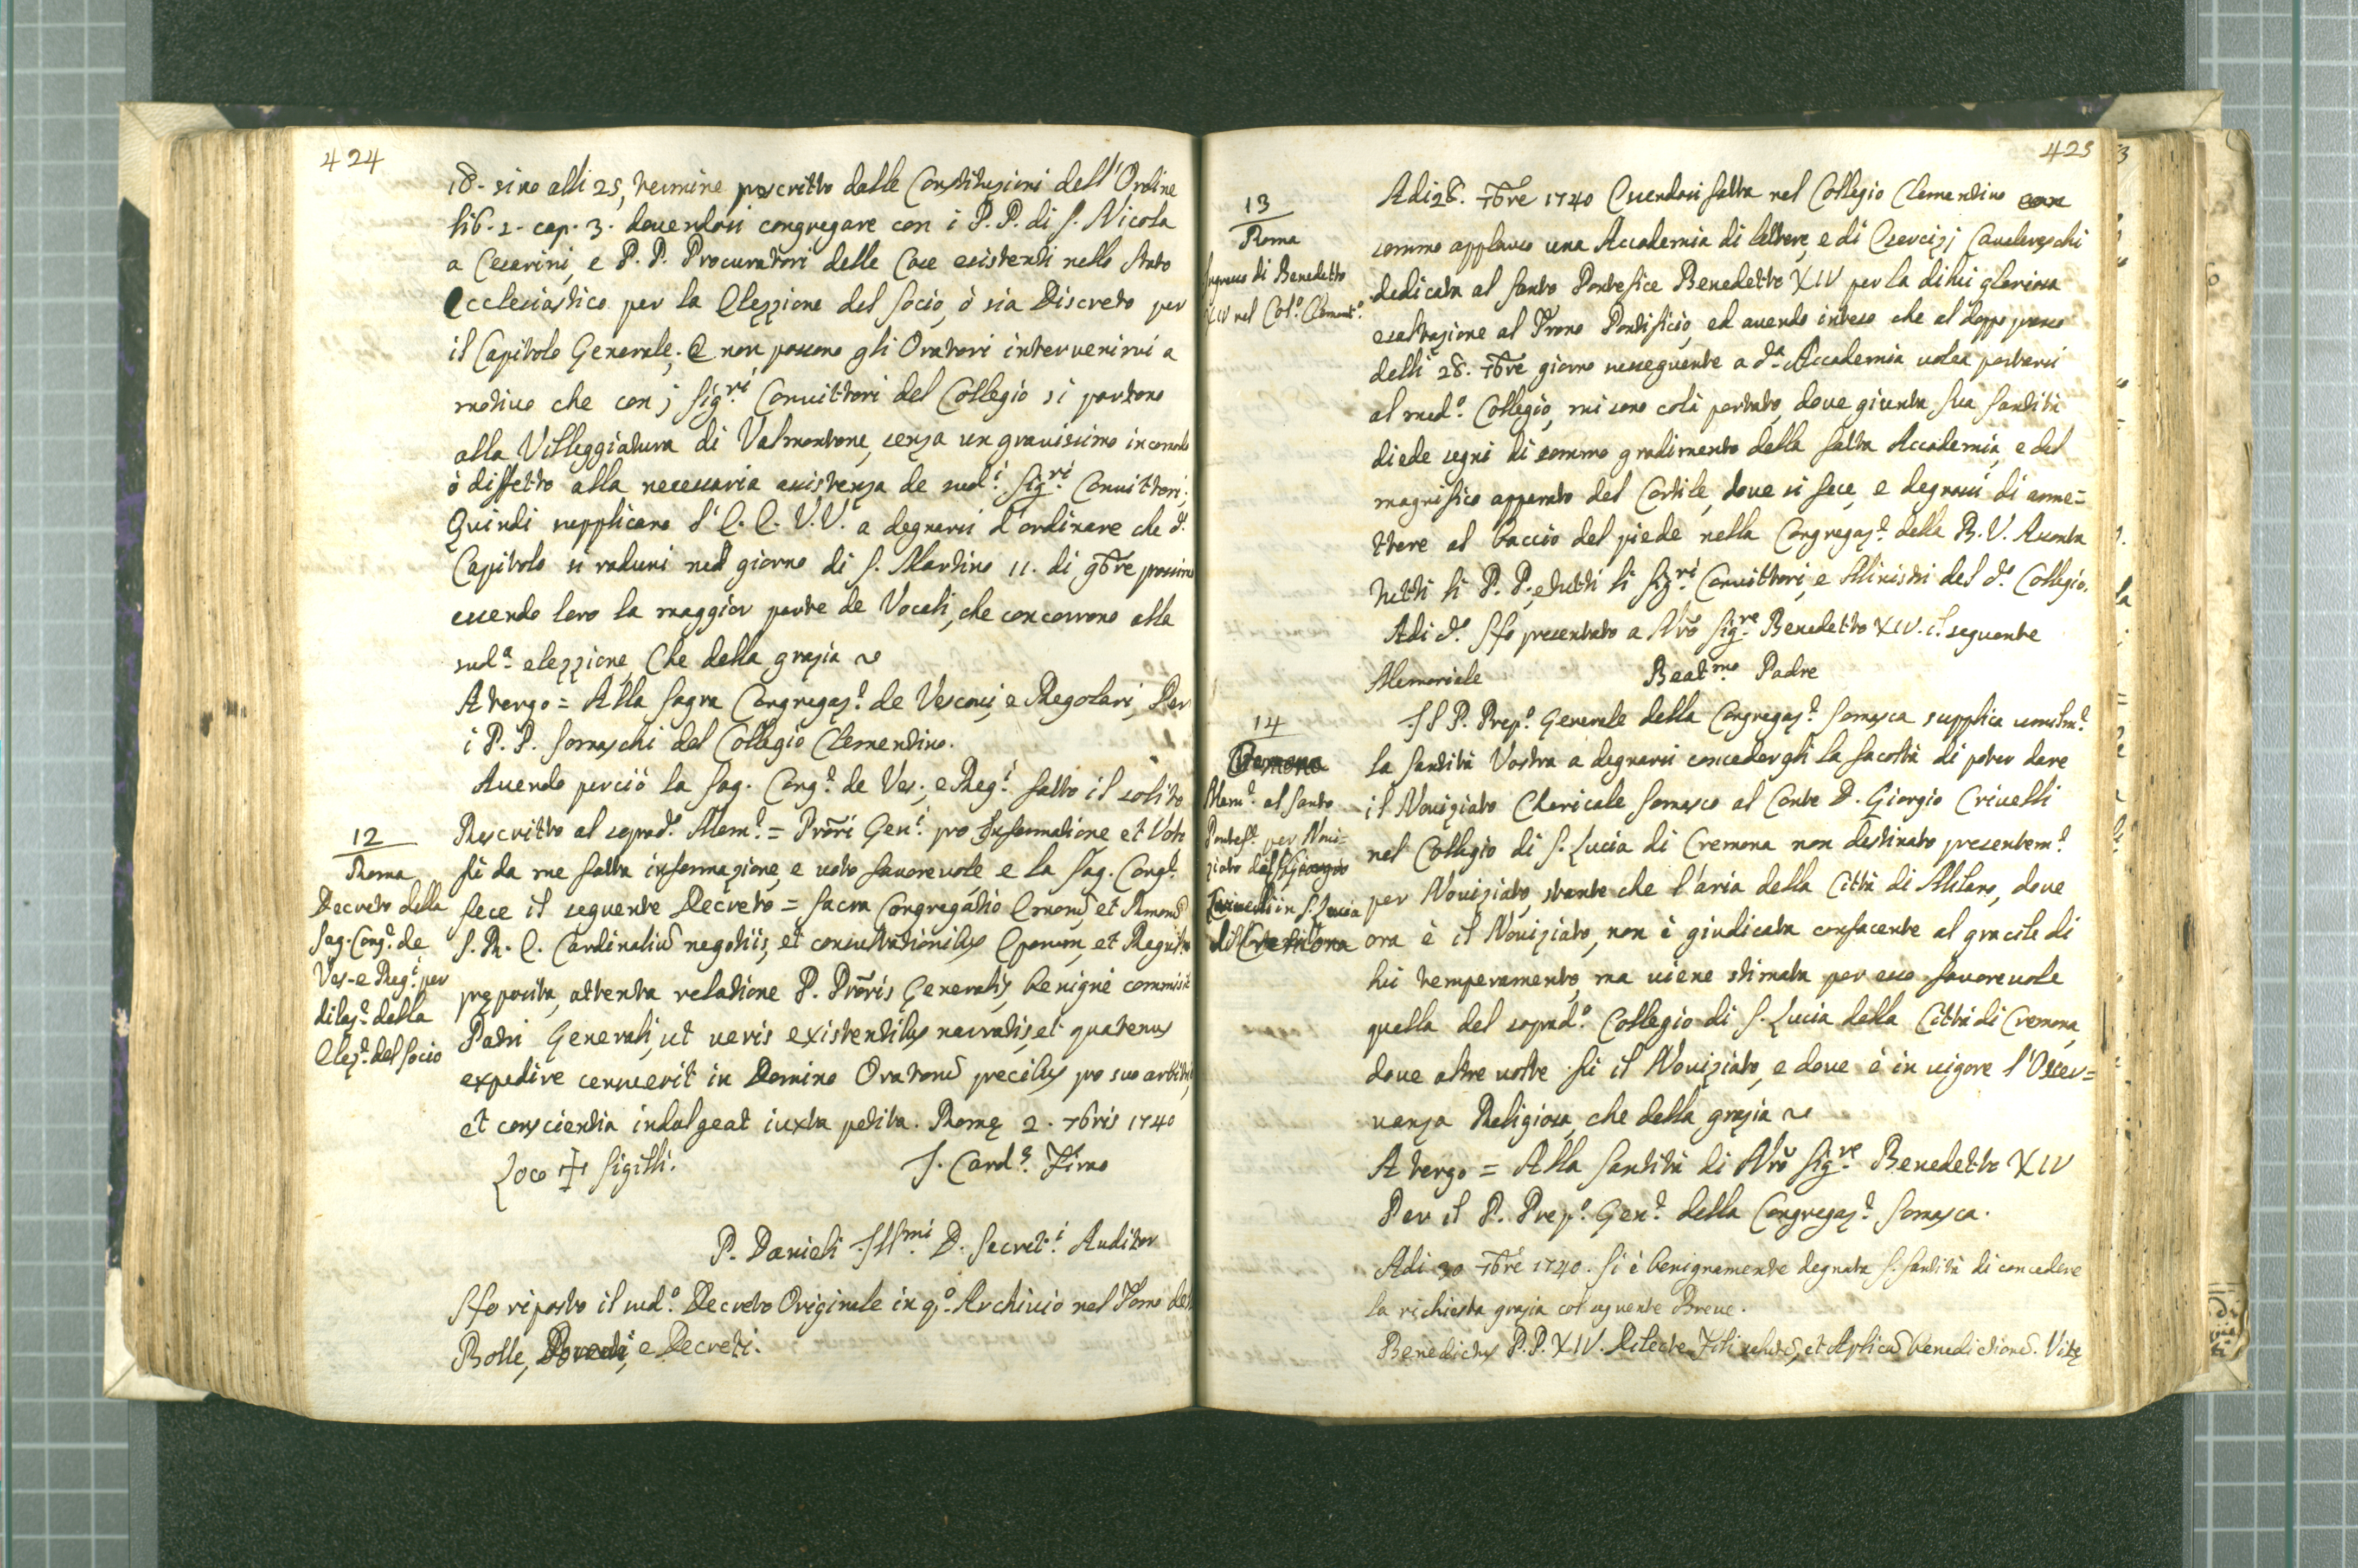 424
18. sino alli 25, termine prescritto dalle Constituzioni dell'Ordine
lib. 2. cap. 3. dovendosi congregare con i P.P. di S. Nicola
a Cesarini, e P.P. Procuratori delle Case esistenti nello Stato
Ecclesiastico per la Elezzione del Socio, ò sia Discreto per
il Capitolo Generale. E non possono gli Oratori intervenirvi a
motivo che con j Sig.ri Convittori del Collegio si portono
alla Villeggiatura di Valmontone, senza un gravissimo incomodo
ò diffetto alla necessaria assistenza de sud.i Sig.ri Convittori;
Quindi supplicano l'E.E. V.V. a degnarsi d'ordinare che d.o
Capitolo si raduni nel giorno di S. Martino 11. di 9bre prossimo
essendo loro la maggior parte de Vocali, che concorrono alla
sud.a elezzione, Che della grazia
A tergo = Alla Sagra Congregaz.e de Vescovi, e Regolari, Per
i P.P. Somaschi del Collegio Clementino.
Avendo perciò la Sag. Cong.e de Ves., e Reg.i fatto il solito
Rescritto al soprad.o Mem.e = Prõri Gen.i pro Informatione et Voto
fù da me fatta informazione, e voto favorevole e la Sag. Cong.e
fece il seguente Decreto = Sacra Congregatio Emorũ et Rmorũ
S. R. E. Cardinaliũ negotiis, et consultationibus Eporum, et Regulariũ
pręposita, attenta relatione P. Prõris Generalis, benignè commisit
Patri Generali, ut veris existentibus narratis, et quatenus
expedire censuerit in Domino Oratorũ precibus pro suo arbitrio,
et conscientia indulgeat iuxta petita. Romę 2. 7bris 1740
Loco + Sigilli. F. Card.s Firao
P. Danieli Ill.mi D. Secret.i Auditor
Si fo riposto il sud.o Decreto Originale in q.o Archivio nel Tomo delle
Bolle, Brevi, e Decreti.
12
Roma
Decreto della
Sag. Cong.e de
Ves. e Reg.i per
dilaz.e della
Elez.e del Socio
425
Adi 28. 7bre 1740 Essendosi fatta nel Collegio Clementino con
sommo applauso una Accademia di lettere, e di Esercizj Cavalereschi
dedicata al Santo Pontefice Benedetto XIV per la di lui gloriosa
esaltazione al Trono Pontificio, ed avendo inteso che al doppo pranso
delli 28. 7bre giorno susseguente a d.a Accademia volea portarsi
al med.o Collegio, mi sono colà portato, dove giunta Sua Santità
diede segni di sommo gradimento della fatta Accademia, e del
magnifico apparato del Cortile, dove si fece, e degnossi di ame=
ttere al baccio del piede nella Congregaz.e della B.V. Assonta
tutti li P.P., e tutti li Sig.ri Convittori, e Ministri del d.o Collegio.
Adi d.o Si fo presentato a Nrõ Sig.re Benedetto XIV. il seguente
Memoriale Beat.mo Padre
Il P. Prep.o Generale della Congregaz.e Somasca supplica umilm.e
la Santità Vostra a degnarsi concedergli la facoltà di poter dare
il Noviziato Chericale Somasco al Conte D. Giorgio Crivelli
nel Collegio di S. Lucia di Cremona non destinato presentem.e
per Noviziato, stante che l'aria della Città di Milano, dove
ora è il Noviziato, non è giudicata confacente al gracile di
lui temperamento, ma viene stimata per esso favorevole
quella del soprad.o Collegio di S. Lucia della Città di Cremona,
dove altre volte fù il Noviziato, e dove è in vigore l'Osser=
vanza Religiosa, che della grazia
A tergo = Alla Santità di Nrõ Sig.re Benedetto XIV
Per il P. Prep.o Gen.e della Congregaz.e Somasca.
Adi 30 7bre 1740. Si è benignamente degnata S. Santità di concedere
la richiesta grazia col seguente Breve.
Benedictus P.P. XIV. Dilecte Fili salutẽ, et Aplicã benedictionẽ. Vitę
13
Roma
Ingresso di Benedetto
XIV nel Col.o Clement.o
14
Cremona
Mem.e al Santo
Pontef.e per Novi=
ziato del Giorgio
Crivelli in S. Lucia
di Cremona